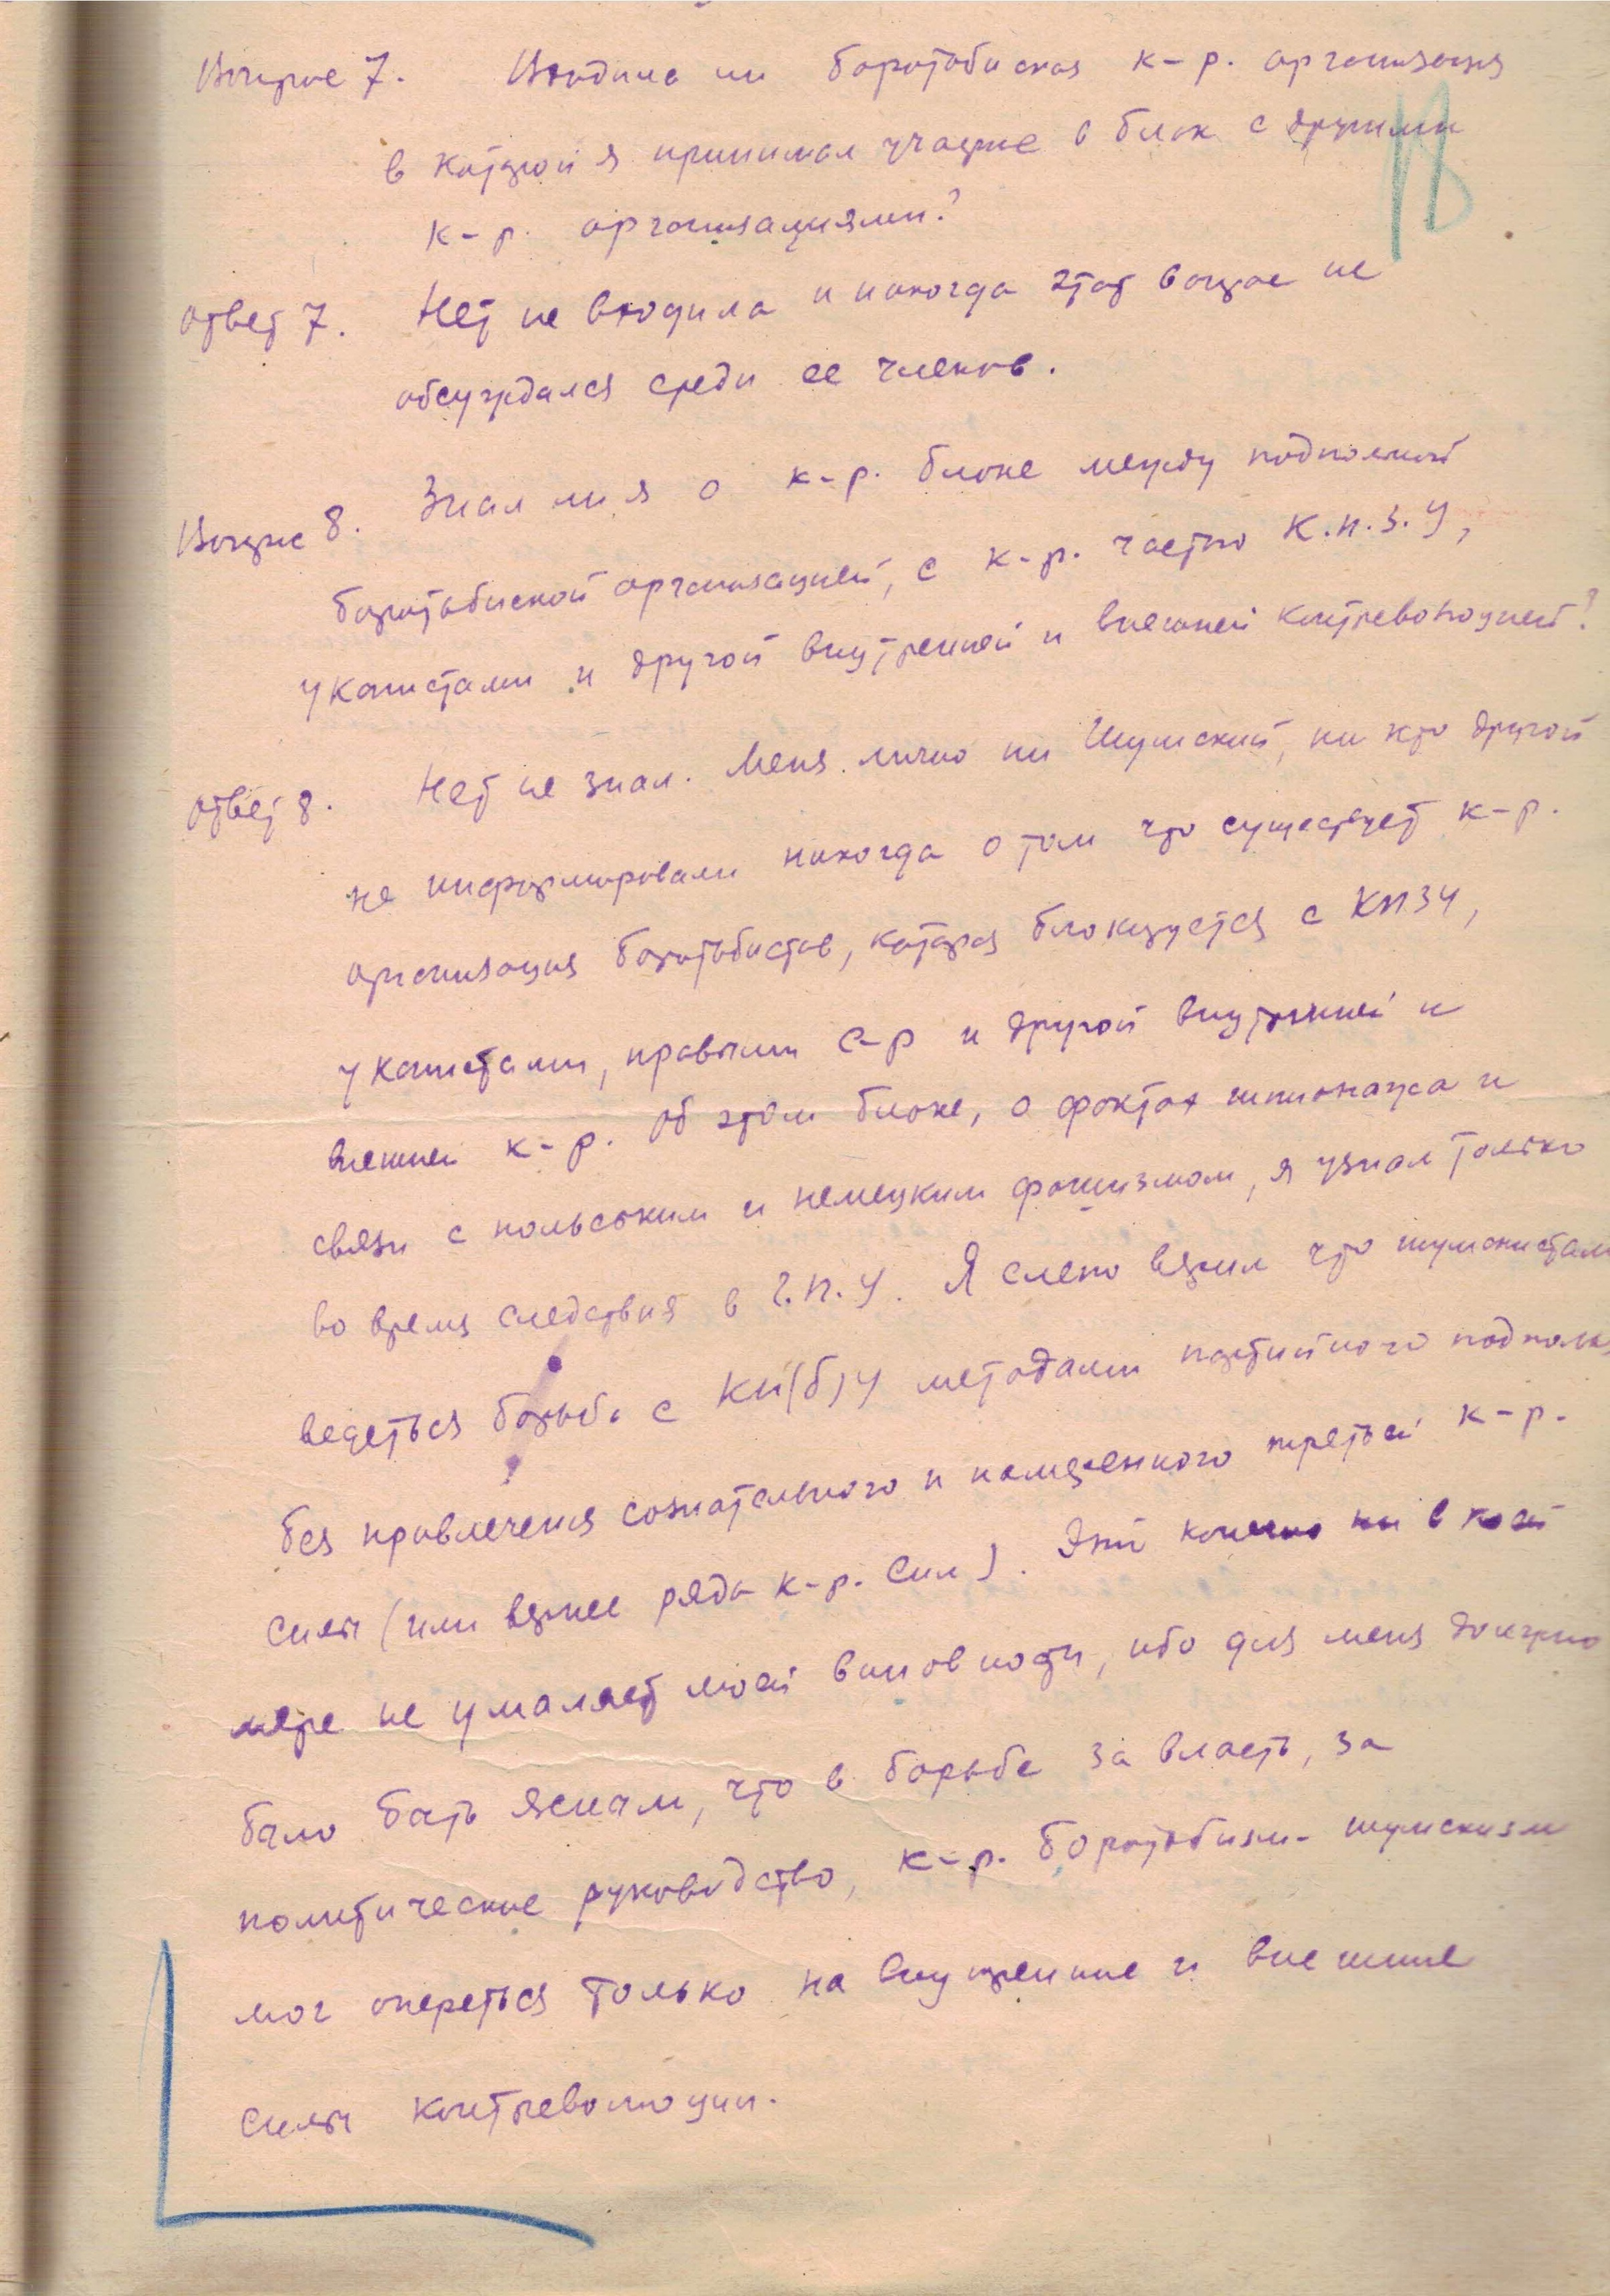 Вопрос 7. Входила ли боротьбиская к-р. организация
в которой я принимал участие в блок с другими
к-р. организациями?
Ответ 7. Нет не входила и никогда этот вопрос не
обсуждался среди ее членов.
Вопрос 8. Знал ли я о к-р. блоке между подпольной
боротьбиской организацией, с к-р. частью К.П.З.У,
укапистами и другой внутренней и внешней контреволюцией?
Ответ 8. Нет не знал. Меня лично ни Шумский, ни кто другой
не информировали никогда о том что существует к-р.
организация боротьбистов, которая блокируется с КПЗУ,
укапистами, правыми с-р и другой внутренней и
внешней к-р. Об этом блоке, о фактах шпионажа и
связи с польським и немецким фашизмом, я узнал только
во время следствия в Г.П.У. Я слепо верил что шумскистами
ведеться борьба с КП(б)У методами партийного подполья
без привлечения сознательного и намеренного третьей к-р.
силы (или вернее ряда к-р. сил). Это конечно ни в коей
мере не умаляет моей виновности, ибо для меня должно
было быть ясным, что в борьбе за власть, за
политическое руководство, к-р. боротьбизм-шумскизм
мог опереться только на внутренние и внешние
силы контреволюции.